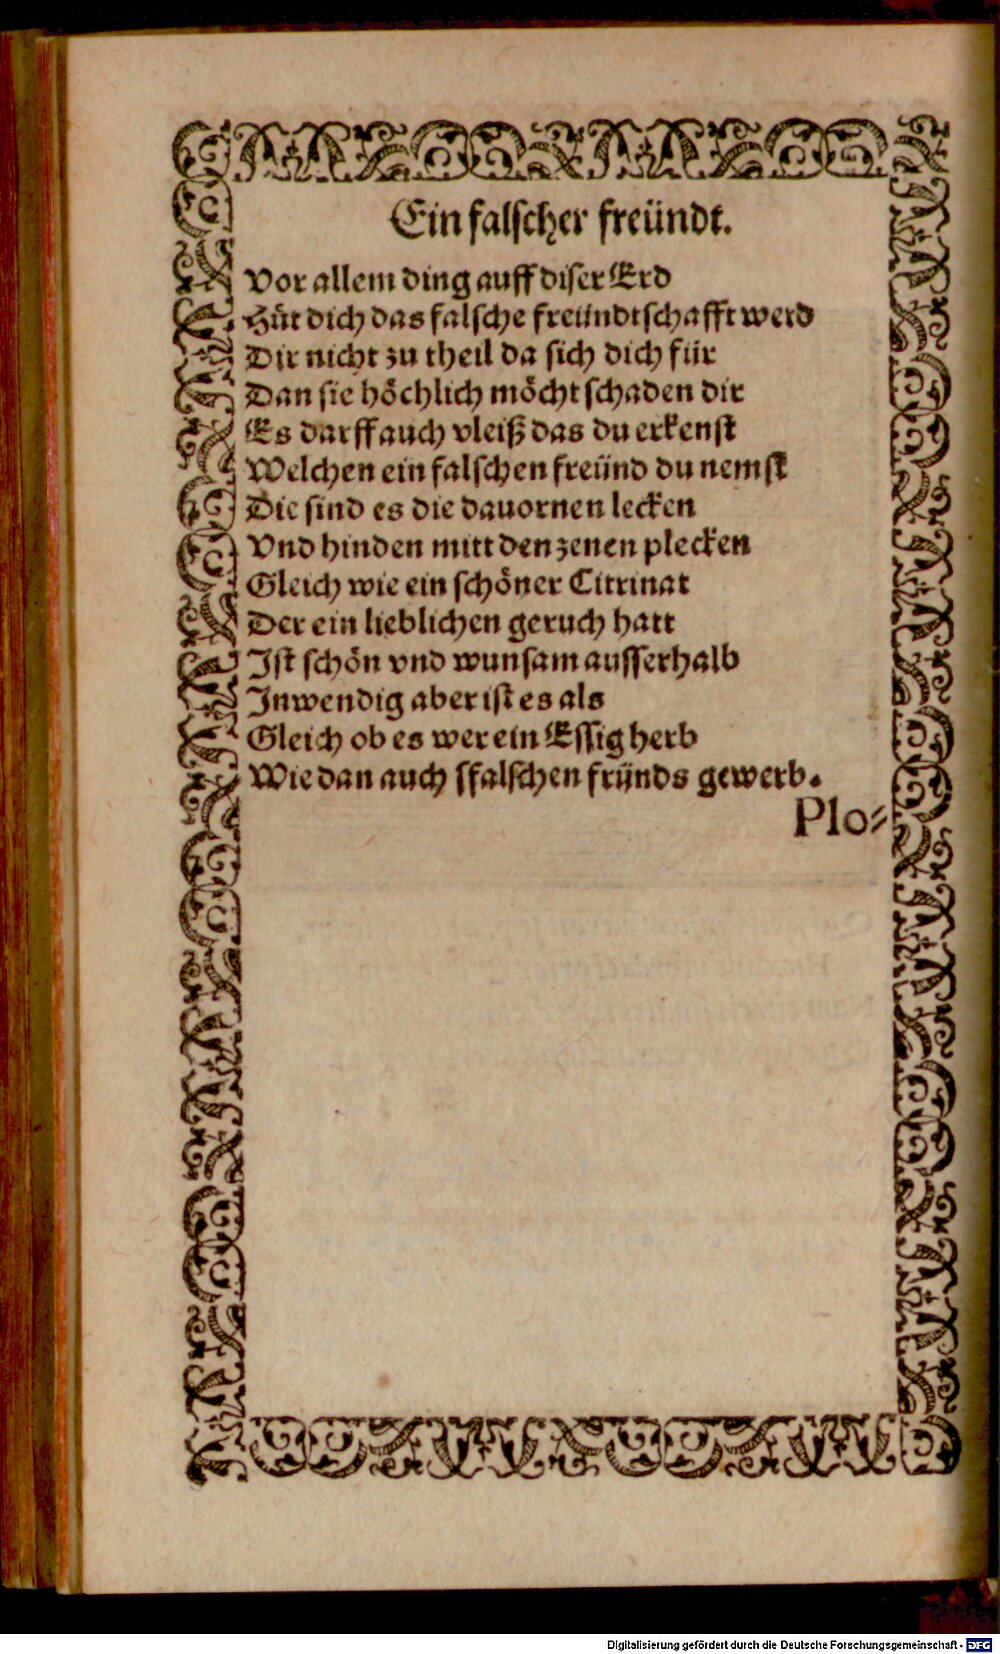 Ein falscher freündt.
Vor allem ding auff diser Erd
Hüt dich das falsche freündtschafft werd
Dir nicht zu theil da sich dich für
Dan sie höchlich möcht schaden dir
Es darff auch vleiß das du erkenst
Welchen ein falschen freünd du nemst
Die sind es die dauornen lecken
Vnd hinden mitt den zenen plecken
Gleich wie ein schöner Citrinat
Der ein lieblichen geruch hatt
Ist schön vnd wunsam ausserhalb
Inwendig aber ist es als
Gleich ob es wer ein Essig herb
Wie dan auch sfalschen fründs gewerb.
Plo⸗
Digitalisierung gefördert durch die Deutsche Forschungsgemeinschaft - DFG